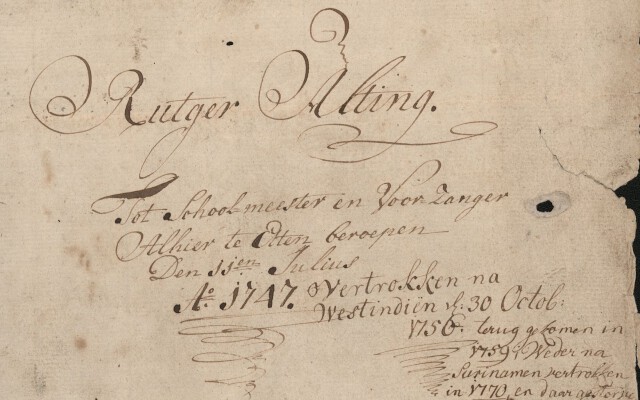 Rutger Alting.
Tot Schoolmeester en Voorzanger
Alhier te Etten beroepen
Den 11en Julius
Ao 1747. Vertrokken na
Westindiën d: 30 Octob:
1756. terug gekomen in
1759. Weder na
Surinamen vertrokken
in 1770, en daar gestorven